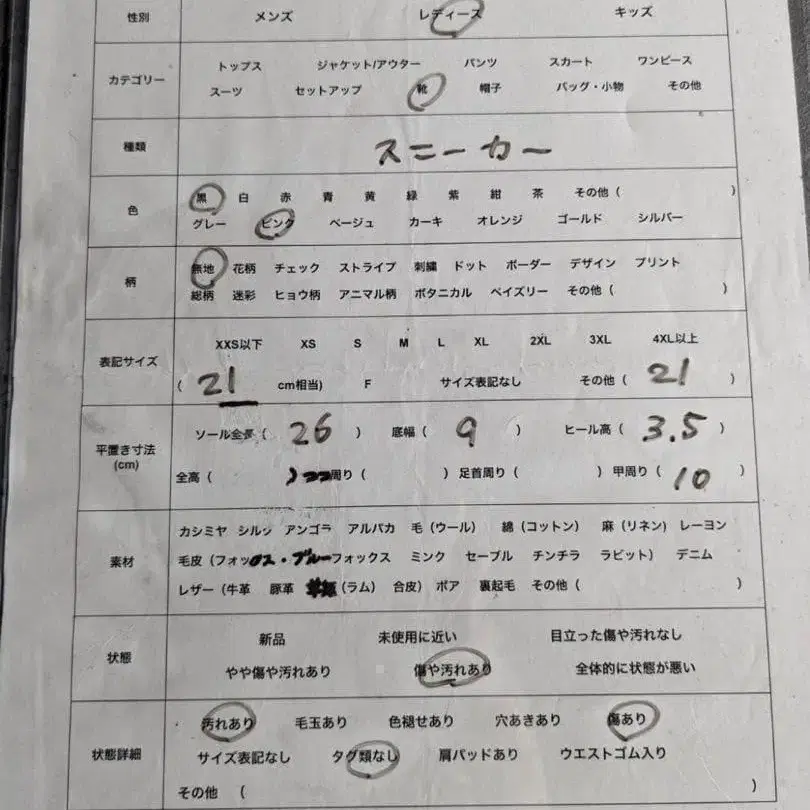 性別 メンズ レディース キッズ
カテゴリー トップス ジャケット/アウター パンツ スカート ワンピース
スーツ セットアップ 靴 帽子 バッグ・小物 その他
種類 スニーカー
色 黒 白 赤 青 黄 緑 紫 紺 茶 その他 ( )
グレー ピンク ベージュ カーキ オレンジ ゴールド シルバー
柄 無地 花柄 チェック ストライプ 刺繍 ドット ボーダー デザイン プリント
総柄 迷彩 ヒョウ柄 アニマル柄 ボタニカル ペイズリー その他 ( )
表記サイズ XXS以下 XS S M L XL 2XL 3XL 4XL以上
( 21 cm相当) F サイズ表記なし その他 ( 21 )
平置き寸法 (cm) ソール全長 ( 26 ) 底幅 ( 9 ) ヒール高 ( 3.5 )
全高 ( ) 周り ( ) 足首周り ( ) 甲周り ( 10 )
素材 カシミヤ シルク アンゴラ アルパカ 毛 (ウール) 綿 (コットン) 麻 (リネン) レーヨン
毛皮 (フォックス・ブルーフォックス ミンク セーブル チンチラ ラビット) デニム
レザー (牛革 豚革 (ラム) 合皮) ボア 裏起毛 その他 ( )
状態 新品 未使用に近い 目立った傷や汚れなし
やや傷や汚れあり 傷や汚れあり 全体的に状態が悪い
状態詳細 汚れあり 毛玉あり 色褪せあり 穴あきあり 傷あり
サイズ表記なし タグ類なし 肩パッドあり ウエストゴム入り
その他 ( )